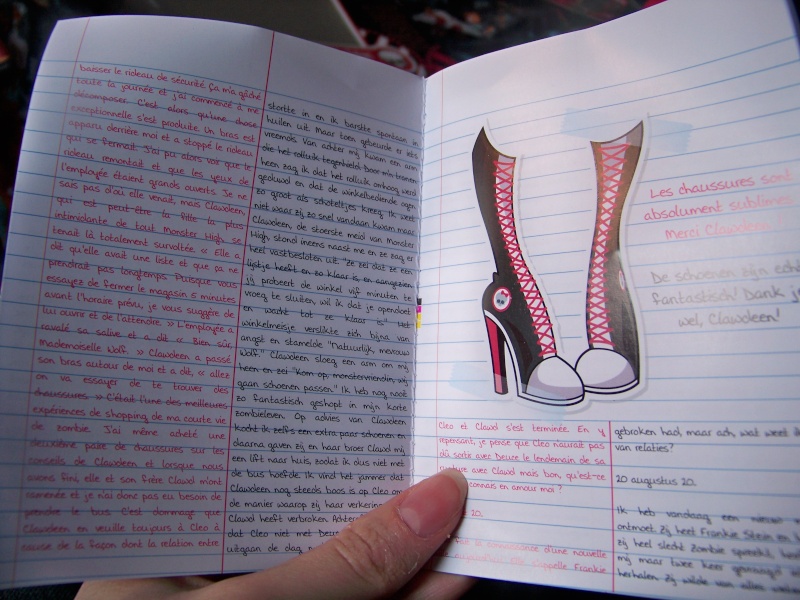 baisser le rideau de sécurité ça m'a gâché
toute la journée et j'ai commencé à me
décomposer. C'est alors qu'une chose
exceptionnelle s'est produite. Un bras est
apparu derrière moi et a stoppé le rideau
qui se fermait. J'ai pu alors voir que le
rideau remontait et que les yeux de
l'employée étaient grands ouverts. Je ne
sais pas d'où elle venait, mais Clawdeen,
qui est peut-être la fille la plus
intimidante de tout Monster High, se
tenait là totalement survoltée « Elle a
dit qu'elle avait une liste et que ça ne
prendrait pas longtemps. Puisque vous
essayez de fermer le magasin 5 minutes
avant l'horaire prévu, je vous suggère de
lui ouvrir et de l'attendre. » L'employée a
ravalé sa salive et a dit « Bien sûr,
mademoiselle Wolf. » Clawdeen a passé
son bras autour de moi et a dit, « allez
on va essayer de te trouver des
chaussures. » C'était l'une des meilleures
expériences de shopping de ma courte vie
de zombie. J'ai même acheté une
deuxième paire de chaussures sur les
conseils de Clawdeen et lorsque nous
avons fini, elle et son frère Clawd m'ont
ramenée et je n'ai donc pas eu besoin de
prendre le bus. C'est dommage que
Clawdeen en veuille toujours à Cleo à
cause de la façon dont la relation entre
stortte in en ik barstte spontaan in
huilen uit. Maar toen gebeurde er iets
vreemds. Van achter mij kwam een arm
die het rolluik tegenhield. Door mijn tranen
heen zag ik dat het rolluik omhoog werd
geduwd en dat de winkelbediende ogen
zo groot als schoteltjes kreeg. Ik weet
niet waar zij zo snel vandaan kwam maar
Clawdeen, de stoerste meid van Monster
High, stond ineens naast me en ze zag er
heel vastbesloten uit. "Ze zei dat ze een
lijstje heeft en zo klaar is en aangezien
jij probeert de winkel vijf minuten te
vroeg te sluiten, wil ik dat je opendoet
en wacht tot ze klaar is." Het
winkelmeisje verslikte zich bijna van
angst en stamelde "Natuurlijk, mevrouw
Wolf." Clawdeen sloeg een arm om mij
heen en zei "Kom op, monstervriendin, wij
gaan schoenen passen." Ik heb nog nooit
zo fantastisch geshopt in mijn korte
zombieleven. Op advies van Clawdeen
kocht ik zelfs een extra paar schoenen en
daarna gaven zij en haar broer Clawd mij
een lift naar huis, zodat ik dus niet met
de bus hoefde. Ik vind het jammer dat
Clawdeen nog steeds boos is op Cleo om
de manier waarop zij haar verkering
Clawd heeft verbroken.
dat Cleo niet met Deuce
uitgaan de dag
Les chaussures sont
absolument sublimes
Merci Clawdeen
De schoenen zijn echt
fantastisch! Dank je
wel, Clawdeen!
Cleo et Clawd s'est terminée. En y
repensant, je pense que Cleo n'aurait pas
dû sortir avec Deuce le lendemain de sa
rupture avec Clawd mais bon, qu'est-ce
connais en amour moi ?
20.
connaissance d'une nouvelle
s'appelle Frankie
gebroken had, maar ach, wat weet ik
van relaties?
20 augustus 20.
Ik heb vandaag een nieuw
ontmoet. Zij heet Frankie Stein en
zij heel slecht Zombie spreekt,
mij maar twee keer gevraagd
herhalen. Zij wilde van alles